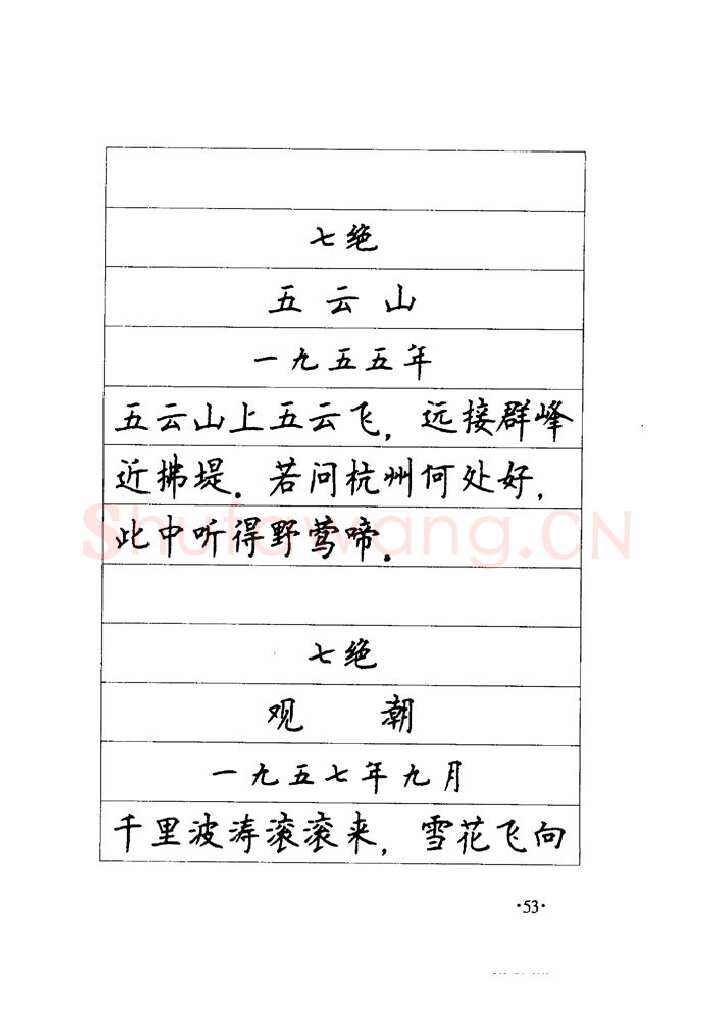 七绝
五云山
一九五五年
五云山上五云飞，远接群峰
近拂堤。若问杭州何处好，
此中听得野莺啼。
Shufawang.CN
七绝
观 朝
一九五七年九月
千里波涛滚滚来，雪花飞向
·53·